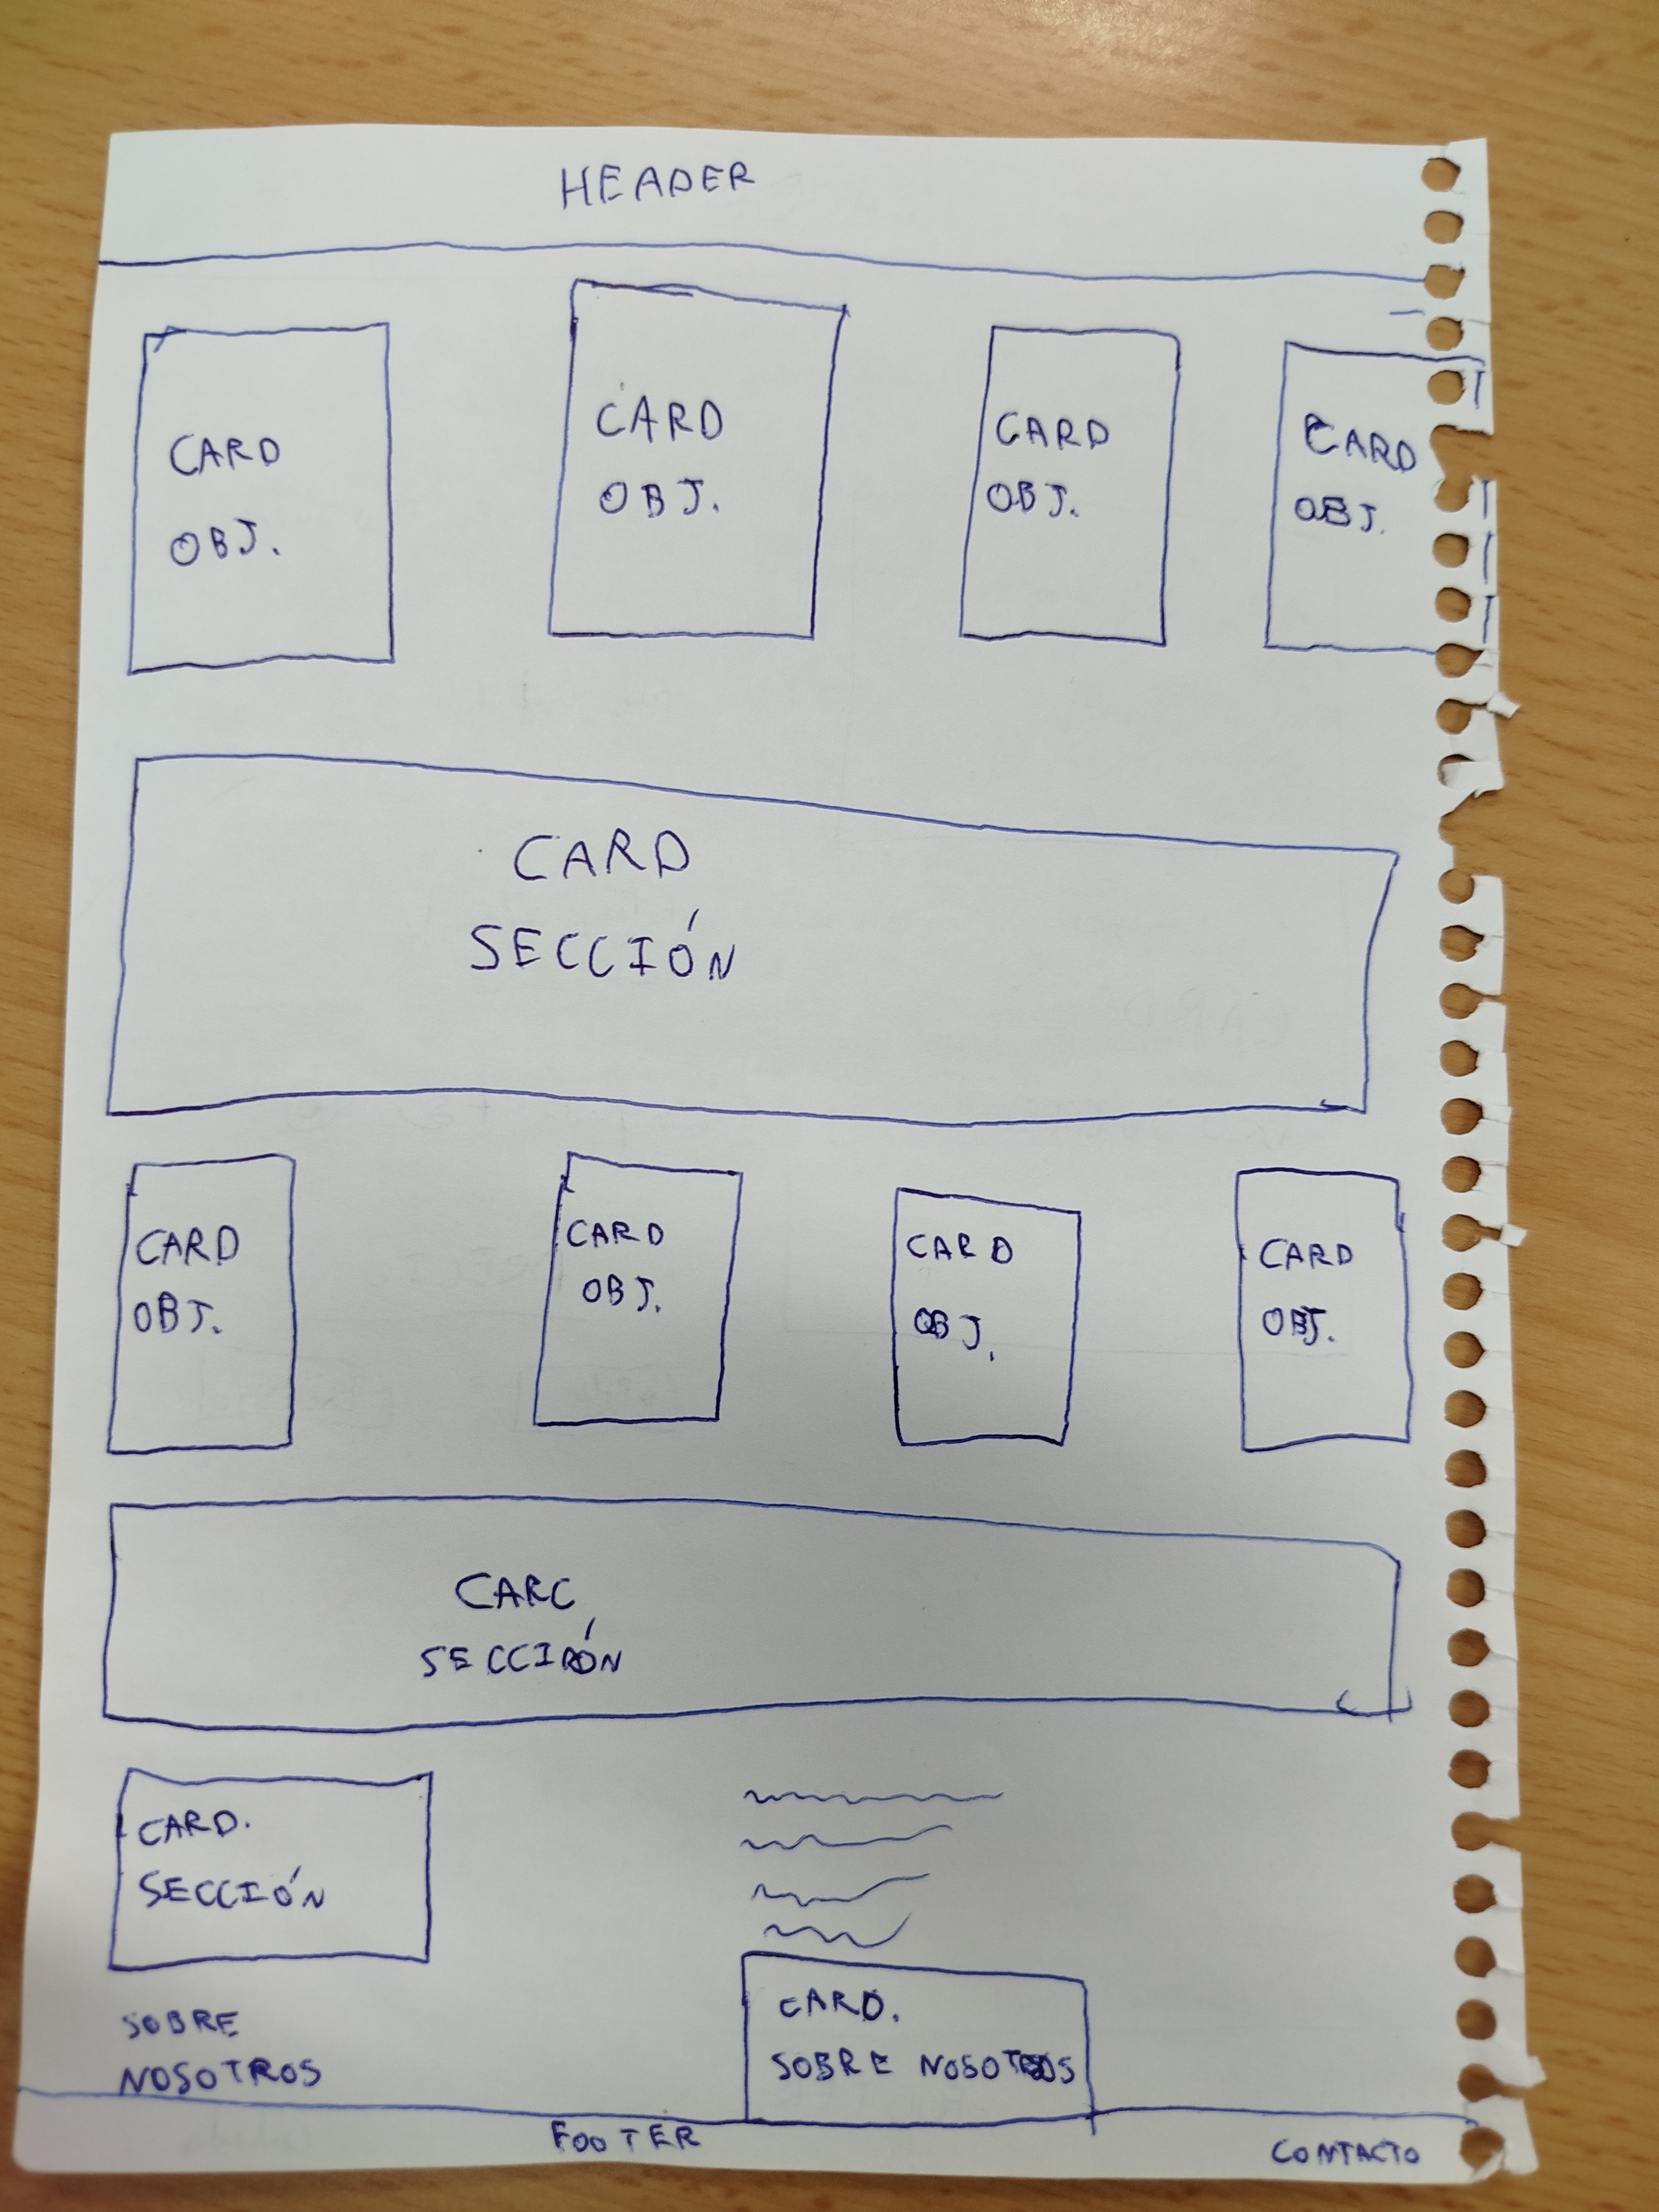 HEADER
CARD
OBJ.
CARD
OBJ.
CARD
OBJ.
CARD
OBJ.
CARD
SECCIÓN
CARD
OBJ.
CARD
OBJ.
CARD
OBJ.
CARD
OBJ.
CARC
SECCIÓN
CARD.
SECCIÓN
SOBRE
NOSOTROS
CARD.
SOBRE NOSOTROS
FOOTER
CONTACTO